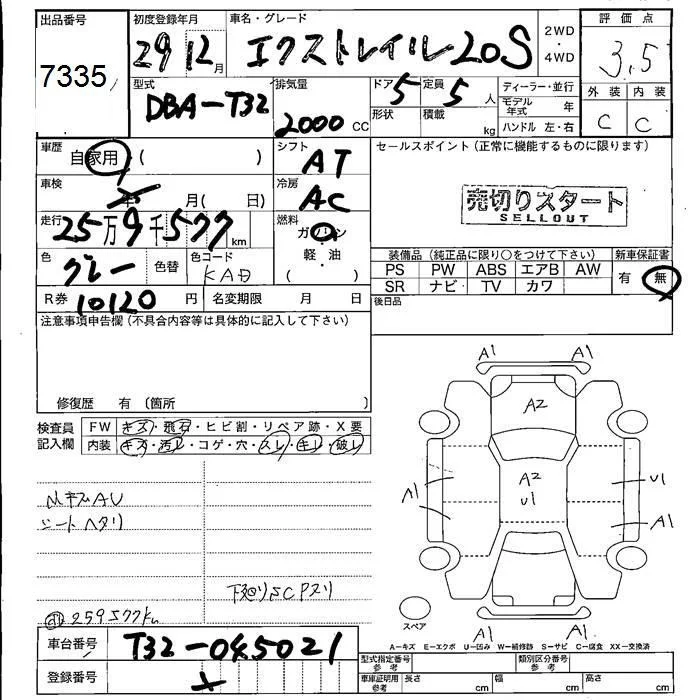 出品番号 初度登録年月 車名・グレード 評価点
7335 29 12月 エクストレイル 20S 2WD・4WD 3.5
型式 排気量 ドア 定員 ディーラー・並行 外装 内装
DBA-T32 2000 CC 5 5人 モデル年式 年 C C
形状 積載 kg ハンドル 左・右
車歴 自家用 ( ) シフト AT セールスポイント(正常に機能するものに限ります)
車検 年 月( 日) 冷房 AC 売切りスタート
SELLOUT
走行 25万9千577km 燃料 ガソリン
軽・油 装備品(純正品に限り○をつけて下さい) 新車保証書
色 グレー 色替 色コード KAD PS PW ABS エアB AW 有 無
SR ナビ TV カワ
R券 10120円 名変期限 月 日 後日品
注意事項申告欄(不具合内容等は具体的に記入して下さい)
修復歴 有 (箇所 )
A1 A1
検査員 FW キズ・飛石・ヒビ割・リペア跡・X要 A2
記入欄 内装 キズ・汚レ・コゲ・穴・スレ・キレ・破レ
A2
A1 U1 U1
内キズAU
シートヘタリ A1
下廻りSCPスリ
259577km
スペア
A1 A1
車台番号 T32-045021 A−キズ E−エクボ U−凹み W−補修跡 S−サビ C−腐食 XX−交換済
型式指定番号 参考 類別区分番号 参考
登録番号 車庫証明用 参考 長さ cm 幅 cm 高さ cm